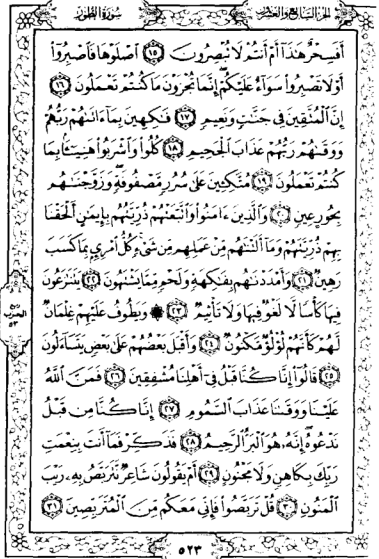 الجزء السابع والعشرون
سورة الطور
أَفَسِحْرٌ هَٰذَآ أَمْ أَنتُمْ لَا تُبْصِرُونَ ١٥ ٱصْلَوْهَا فَٱصْبِرُوٓا۟
أَوْ لَا تَصْبِرُوا۟ سَوَآءٌ عَلَيْكُمْ إِنَّمَا تُجْزَوْنَ مَا كُنتُمْ تَعْمَلُونَ ١٦
إِنَّ ٱلْمُتَّقِينَ فِى جَنَّٰتٍ وَنَعِيمٍ ١٧ فَٰكِهِينَ بِمَآ ءَاتَىٰهُمْ رَبُّهُمْ
وَوَقَىٰهُمْ رَبُّهُمْ عَذَابَ ٱلْجَحِيمِ ١٨ كُلُوا۟ وَٱشْرَبُوا۟ هَنِيٓـًٔۢا بِمَا
كُنتُمْ تَعْمَلُونَ ١٩ مُتَّكِـِٔينَ عَلَىٰ سُرُرٍ مَّصْفُوفَةٍ وَزَوَّجْنَٰهُم
بِحُورٍ عِينٍ ٢٠ وَٱلَّذِينَ ءَامَنُوا۟ وَٱتَّبَعَتْهُمْ ذُرِّيَّتُهُم بِإِيمَٰنٍ أَلْحَقْنَا
بِهِمْ ذُرِّيَّتَهُمْ وَمَآ أَلَتْنَٰهُم مِّنْ عَمَلِهِم مِّن شَىْءٍ كُلُّ ٱمْرِئٍۭ بِمَا كَسَبَ
رَهِينٌ ٢١ وَأَمْدَدْنَٰهُم بِفَٰكِهَةٍ وَلَحْمٍ مِّمَّا يَشْتَهُونَ ٢٢ يَتَنَٰزَعُونَ
فِيهَا كَأْسًا لَّا لَغْوٌ فِيهَا وَلَا تَأْثِيمٌ ٢٣ ۞ وَيَطُوفُ عَلَيْهِمْ غِلْمَانٌ
لَّهُمْ كَأَنَّهُمْ لُؤْلُؤٌ مَّكْنُونٌ ٢٤ وَأَقْبَلَ بَعْضُهُمْ عَلَىٰ بَعْضٍ يَتَسَآءَلُونَ
٢٥ قَالُوٓا۟ إِنَّا كُنَّا قَبْلُ فِىٓ أَهْلِنَا مُشْفِقِينَ ٢٦ فَمَنَّ ٱللَّهُ
عَلَيْنَا وَوَقَىٰنَا عَذَابَ ٱلسَّمُومِ ٢٧ إِنَّا كُنَّا مِن قَبْلُ
نَدْعُوهُ إِنَّهُۥ هُوَ ٱلْبَرُّ ٱلرَّحِيمُ ٢٨ فَذَكِّرْ فَمَآ أَنتَ بِنِعْمَتِ
رَبِّكَ بِكَاهِنٍ وَلَا مَجْنُونٍ ٢٩ أَمْ يَقُولُونَ شَاعِرٌ نَّتَرَبَّصُ بِهِۦ رَيْبَ
ٱلْمَنُونِ ٣٠ قُلْ تَرَبَّصُوا۟ فَإِنِّى مَعَكُم مِّنَ ٱلْمُتَرَبِّصِينَ ٣١
ربع
الحزب
٥٣
٥٢٣